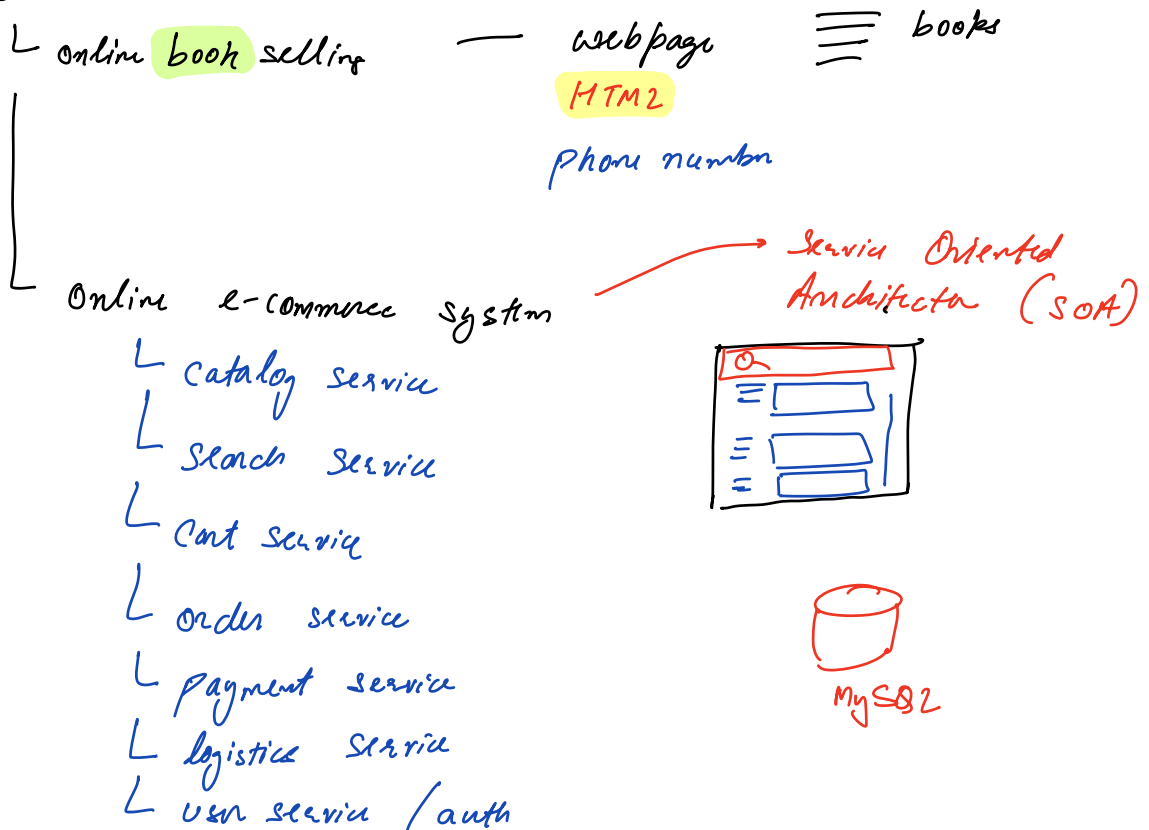 online book selling — webpage
books
HTML
phone number
Online e-commerce system
Service Oriented
Architecture (SOA)
Catalog service
Search service
Cart service
order service
payment service
logistics service
user service / auth
MySQL